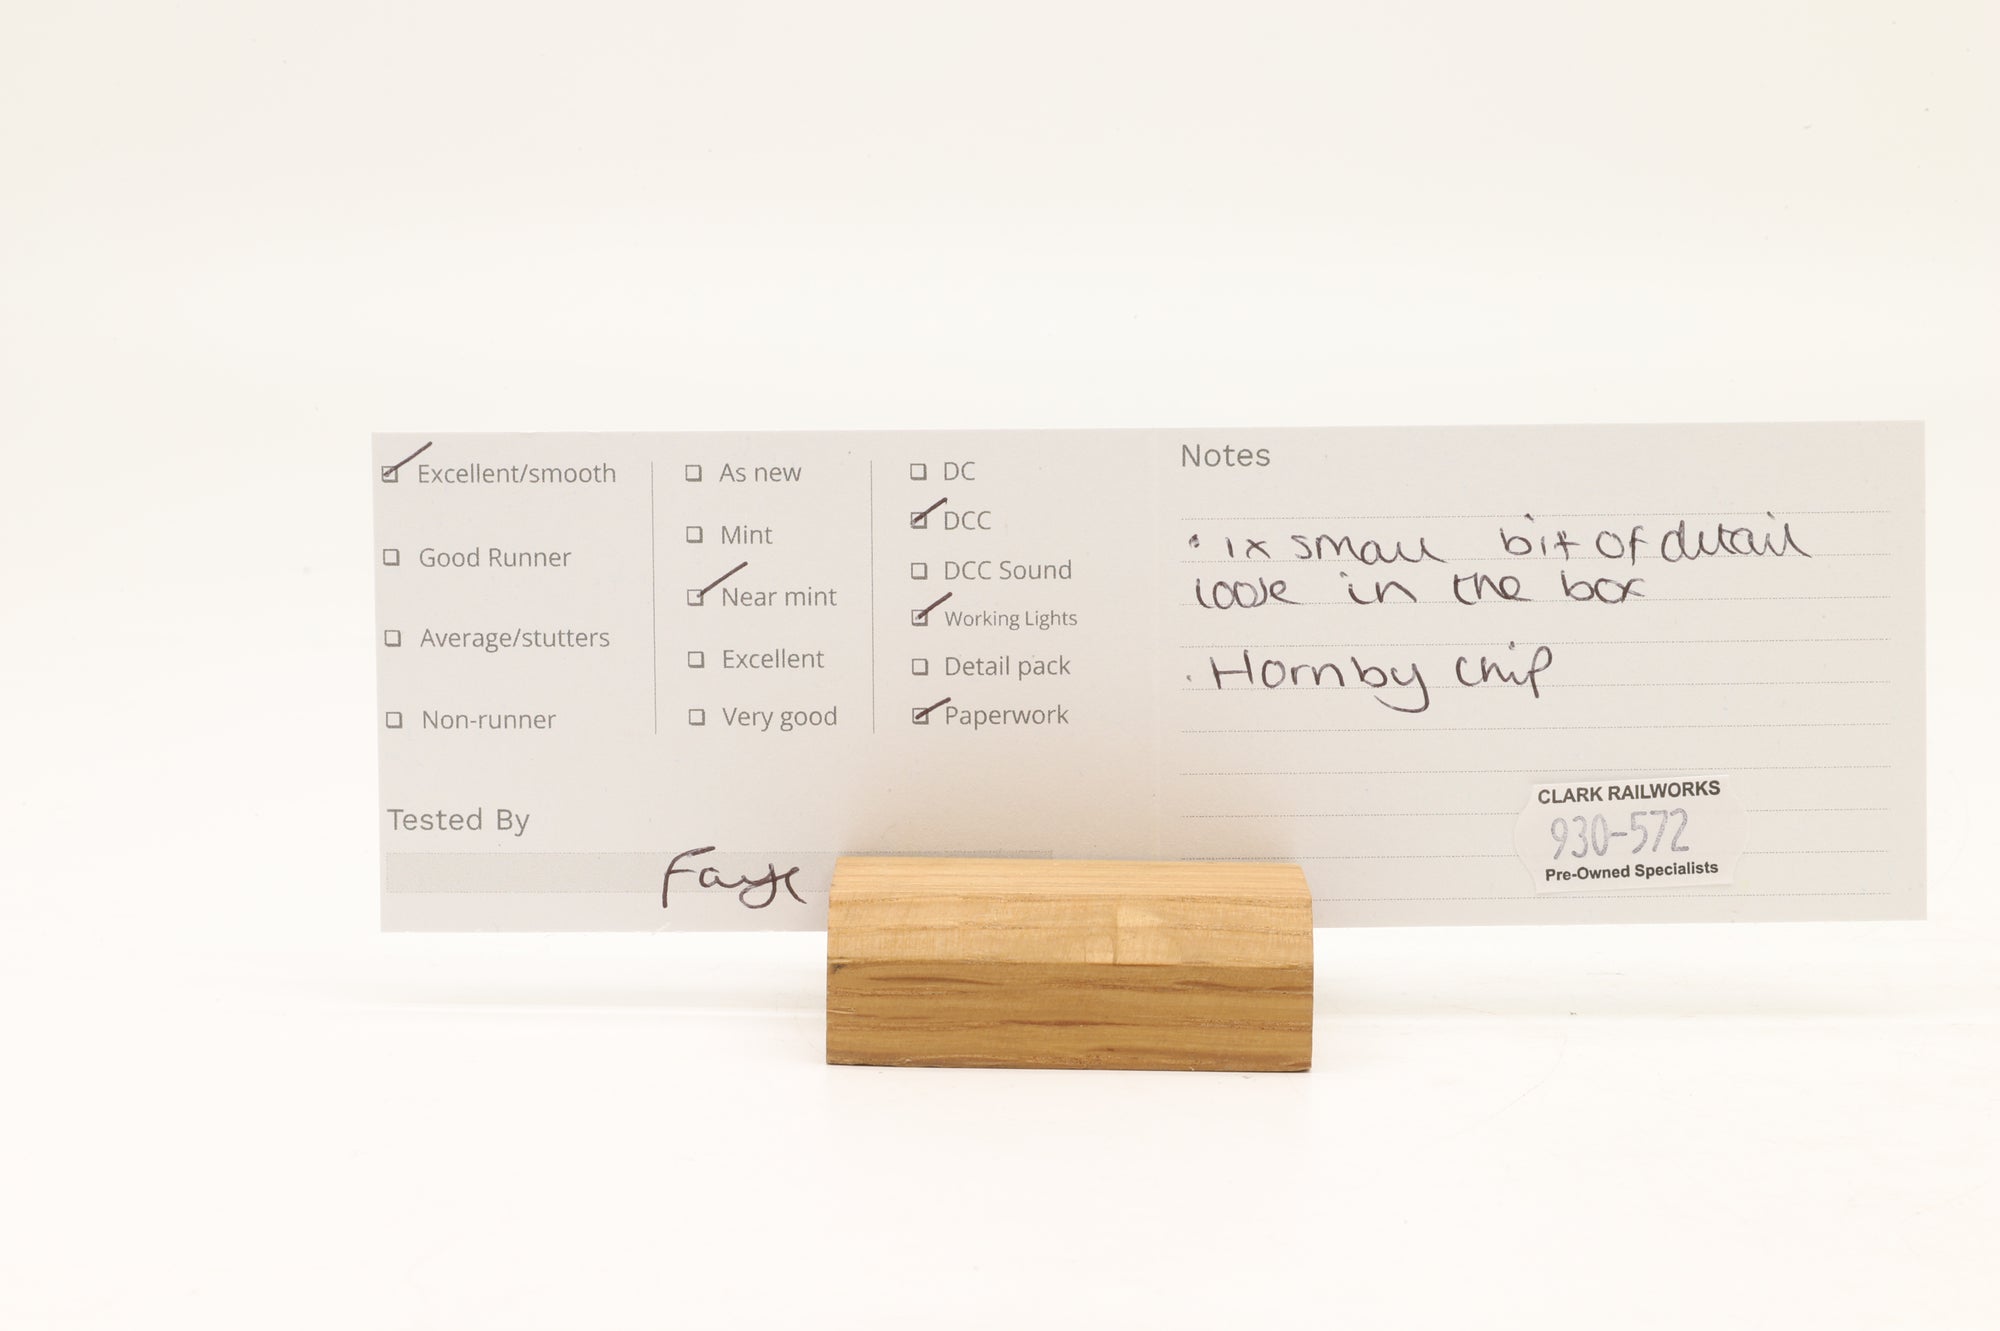 Excellent/smooth
Good Runner
Average/stutters
Non-runner
As new
Mint
Near mint
Excellent
Very good
DC
DCC
DCC Sound
Working Lights
Detail pack
Paperwork
Tested By
Faye
Notes
• 1x small bit of detail
loose in the box
• Hornby chip
CLARK RAILWORKS
930-572
Pre-Owned Specialists